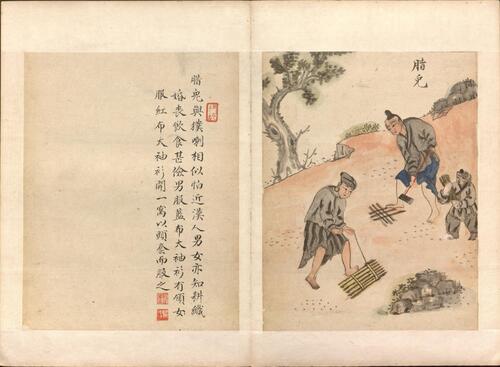 腊兒與撲喇相似怕近漢人男女亦知耕織
婚喪飲食甚儉男服藍布大袖衫有領女
服紅布大袖衫開一窩以頭套而服之
腊兒